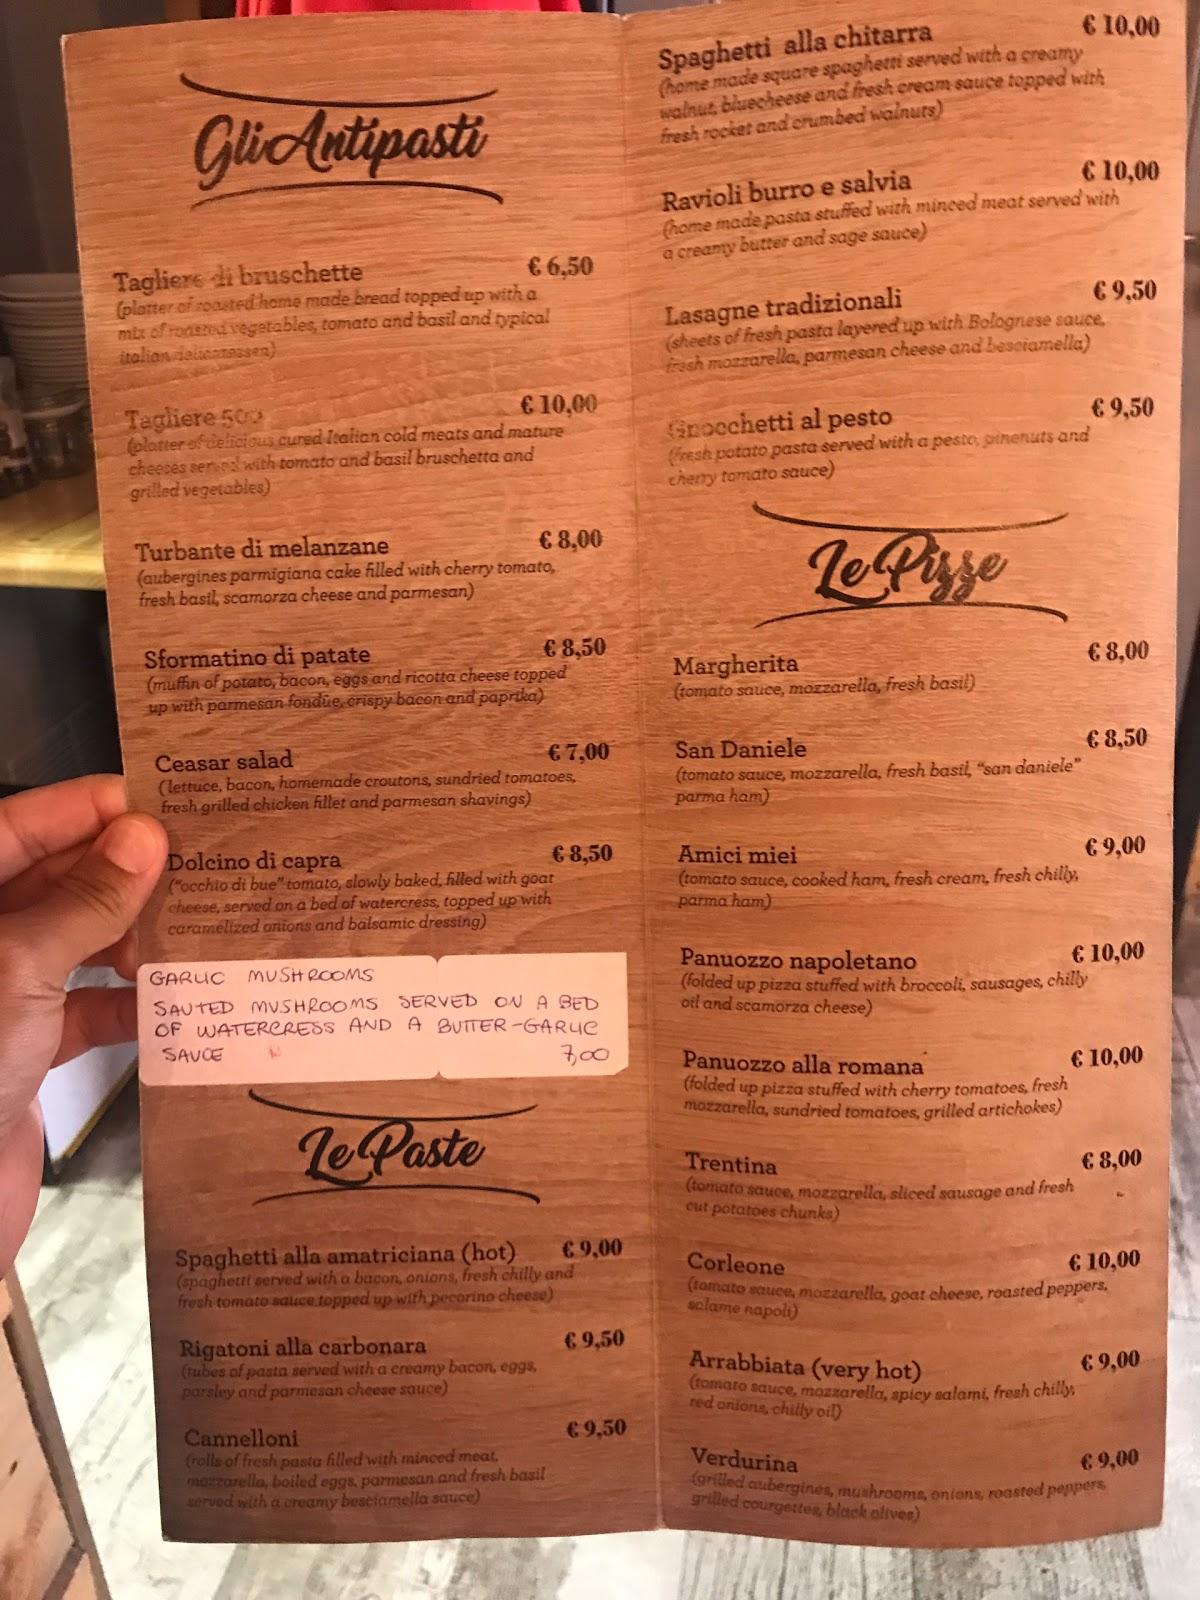 Gli Antipasti
Tagliere di bruschette € 6,50
(platter of roasted home made bread topped up with a
mix of roasted vegetables, tomato and basil and typical
italian delicatessen)
Tagliere 500 € 10,00
(platter of delicious cured Italian cold meats and mature
cheeses served with tomato and basil bruschetta and
grilled vegetables)
Turbante di melanzane € 8,00
(aubergines parmigiana cake filled with cherry tomato,
fresh basil, scamorza cheese and parmesan)
Sformatino di patate € 8,50
(muffin of potato, bacon, eggs and ricotta cheese topped
up with parmesan fondue, crispy bacon and paprika)
Ceasar salad € 7,00
(lettuce, bacon, homemade croutons, sundried tomatoes,
fresh grilled chicken fillet and parmesan shavings)
Dolcino di capra € 8,50
("occhio di bue" tomato, slowly baked, filled with goat
cheese, served on a bed of watercress, topped up with
caramelized onions and balsamic dressing)
GARLIC MUSHROOMS
SAUTED MUSHROOMS SERVED ON A BED
OF WATERCRESS AND A BUTTER-GARLIC
SAUCE 7,00
Le Paste
Spaghetti alla amatriciana (hot) € 9,00
(spaghetti served with a bacon, onions, fresh chilly and
fresh tomato sauce topped up with pecorino cheese)
Rigatoni alla carbonara € 9,50
(tubes of pasta served with a creamy bacon, eggs,
parsley and parmesan cheese sauce)
Cannelloni € 9,50
(rolls of fresh pasta filled with minced meat,
mozzarella, boiled eggs, parmesan and fresh basil
served with a creamy besciamella sauce)
Spaghetti alla chitarra € 10,00
(home made square spaghetti served with a creamy
walnut, bluecheese and fresh cream sauce topped with
fresh rocket and crumbed walnuts)
Ravioli burro e salvia € 10,00
(home made pasta stuffed with minced meat served with
a creamy butter and sage sauce)
Lasagne tradizionali € 9,50
(sheets of fresh pasta layered up with Bolognese sauce,
fresh mozzarella, parmesan cheese and besciamella)
Gnocchetti al pesto € 9,50
(fresh potato pasta served with a pesto, pinenuts and
cherry tomato sauce)
Le Pizze
Margherita € 8,00
(tomato sauce, mozzarella, fresh basil)
San Daniele € 8,50
(tomato sauce, mozzarella, fresh basil, "san daniele"
parma ham)
Amici miei € 9,00
(tomato sauce, cooked ham, fresh cream, fresh chilly,
parma ham)
Panuozzo napoletano € 10,00
(folded up pizza stuffed with broccoli, sausages, chilly
oil and scamorza cheese)
Panuozzo alla romana € 10,00
(folded up pizza stuffed with cherry tomatoes, fresh
mozzarella, sundried tomatoes, grilled artichokes)
Trentina € 8,00
(tomato sauce, mozzarella, sliced sausage and fresh
cut potatoes chunks)
Corleone € 10,00
(tomato sauce, mozzarella, goat cheese, roasted peppers,
salame napoli)
Arrabbiata (very hot) € 9,00
(tomato sauce, mozzarella, spicy salami, fresh chilly,
red onions, chilly oil)
Verdurina € 9,00
(grilled aubergines, mushrooms, onions, roasted peppers,
grilled courgettes, black olives)